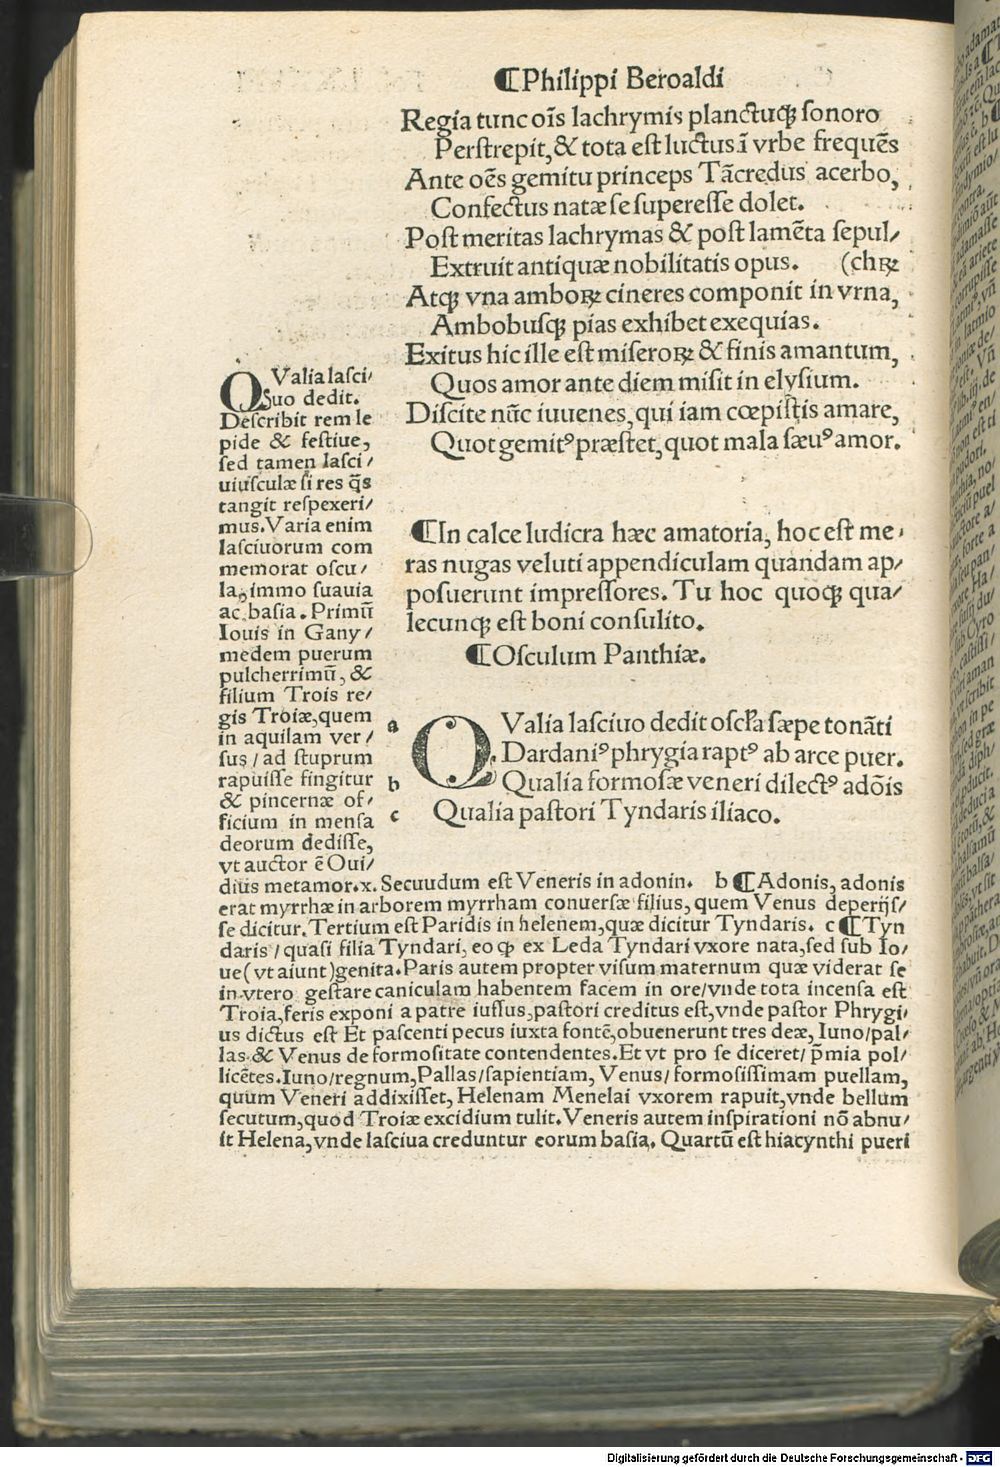 ¶Philippi Beroaldi
Regia tunc oīs lachrymis planctuqꝫ sonoro
Perstrepit, & tota est luctus ī vrbe frequēs
Ante oēs gemitu princeps Tācredus acerbo,
Confectus natæ se superesse dolet.
Post meritas lachrymas & post lamēta sepul/
Extruit antiquæ nobilitatis opus. (chꝝ
Atqꝫ vna amboꝝ cineres componit in vrna,
Ambobusqꝫ pias exhibet exequias.
Exitus hic ille est miseroꝝ & finis amantum,
Quos amor ante diem misit in elysium.
Discite nūc iuuenes, qui iam cœpistis amare,
Quot gemitꝰ præstet, quot mala sæuꝰ amor.
¶In calce ludicra hæc amatoria, hoc est me/
ras nugas veluti appendiculam quandam ap/
posuerunt impressores. Tu hoc quoqꝫ qua/
lecunqꝫ est boni consulito.
¶Osculum Panthiæ.
a QValia lasciuo dedit oscl̃a sæpe tonāti
Dardaniꝰ phrygia raptꝰ ab arce puer.
b Qualia formosæ veneri dilectꝰ adōis
c Qualia pastori Tyndaris iliaco.
QValia lasci/
suo dedit.
Describit rem le
pide & festiue,
sed tamen lasci/
uiusculæ si res q̄s
tangit respexeri/
mus. Varia enim
lasciuorum com
memorat oscu/
la, immo suauia
ac basia. Primū
Iouis in Gany/
medem puerum
pulcherrimū, &
filium Trois re/
gis Troiæ, quem
in aquilam ver/
sus / ad stuprum
rapuisse fingitur
& pincernæ of/
ficium in mensa
deorum dedisse,
vt auctor ē Oui/
dius metamor.x. Secuudum est Veneris in adonin. b ¶Adonis, adonis
erat myrrhæ in arborem myrrham conuersæ filius, quem Venus deperijs/
se dicitur. Tertium est Paridis in helenem, quæ dicitur Tyndaris. c ¶Tyn
daris / quasi filia Tyndari, eo ꝙ ex Leda Tyndari vxore nata, sed sub Io/
ue (vt aiunt) genita. Paris autem propter visum maternum quæ viderat se
in vtero gestare caniculam habentem facem in ore/vnde tota incensa est
Troia, feris exponi a patre iussus, pastori creditus est, vnde pastor Phrygi/
us dictus est Et pascenti pecus iuxta fontē, obuenerunt tres deæ, Iuno/pal/
las & Venus de formositate contendentes. Et vt pro se diceret/ p̄mia pol/
licētes. Iuno/regnum, Pallas/sapientiam, Venus/ formosissimam puellam,
quum Veneri addixisset, Helenam Menelai vxorem rapuit, vnde bellum
secutum, quod Troiæ excidium tulit. Veneris autem inspirationi nō abnu/
it Helena, vnde lasciua creduntur eorum basia. Quartū est hiacynthi pueri
Digitalisierung gefördert durch die Deutsche Forschungsgemeinschaft - DFG